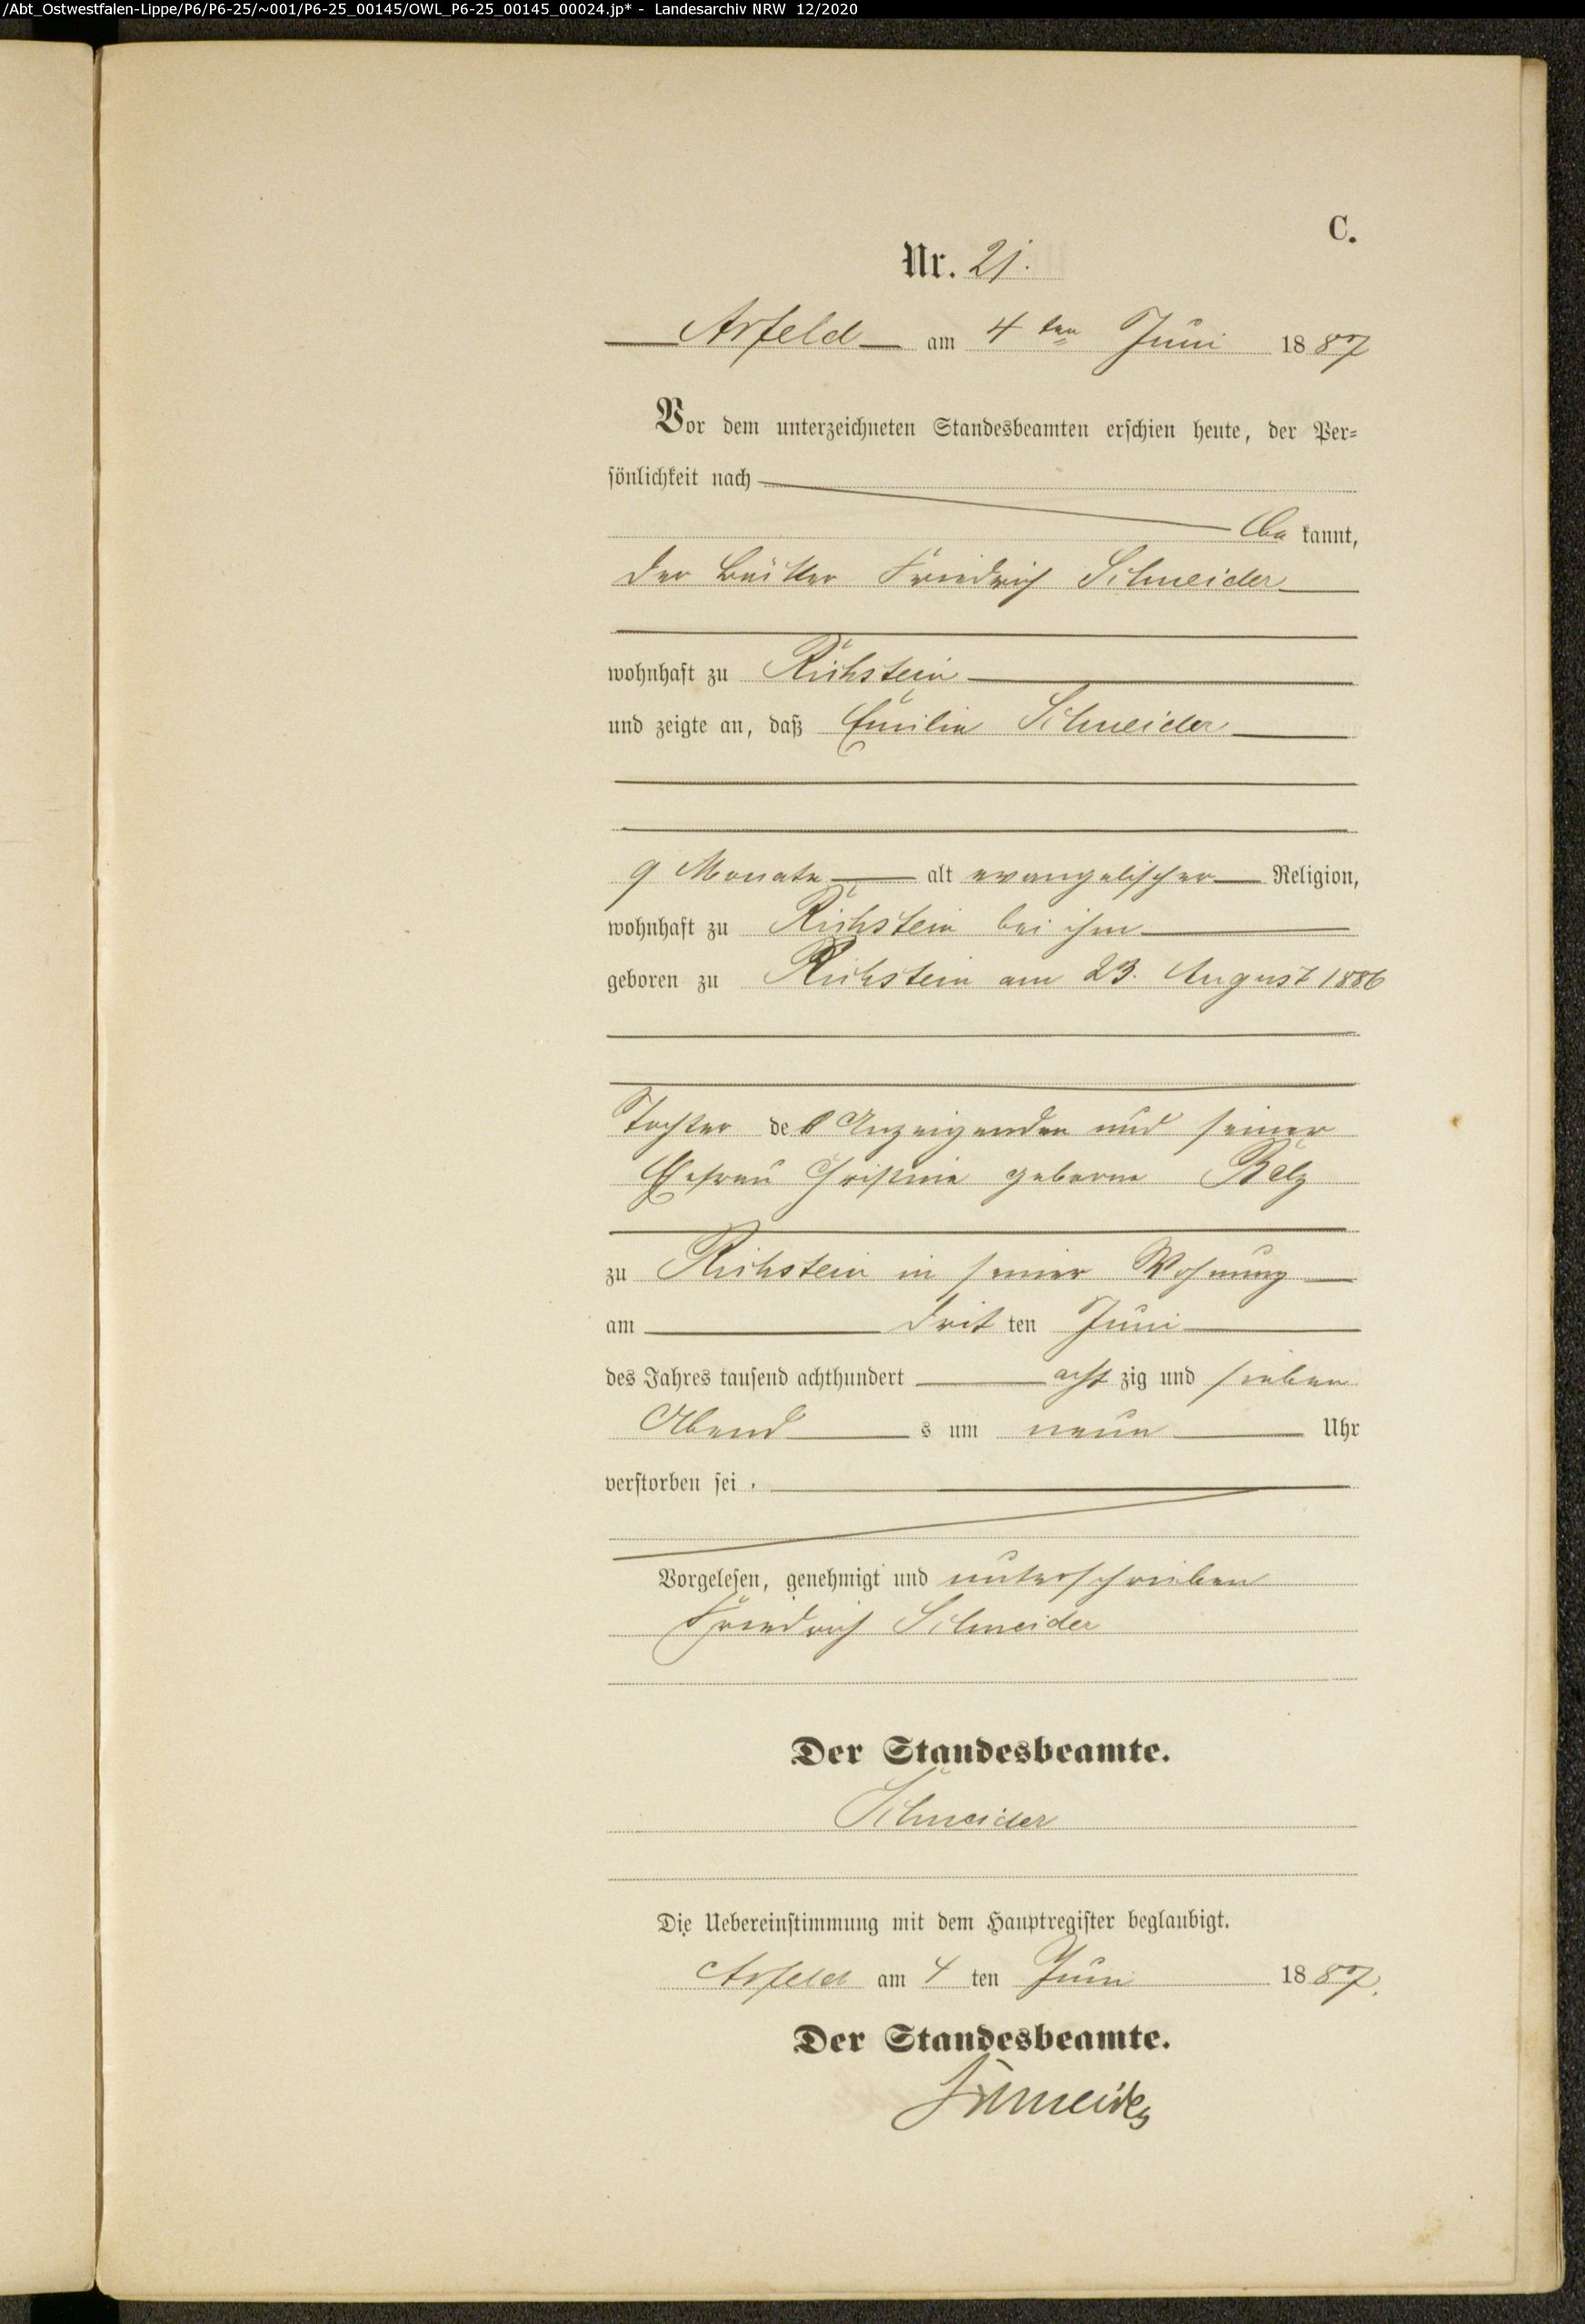 /Abt_Ostwestfalen-Lippe/P6/P6-25/~001/P6-25_00145/OWL_P6-25_00145_00024.jp* - Landesarchiv NRW 12/2020
C.
Nr. 21.
Arfeld am 4ten Juni 1887
Vor dem unterzeichneten Standesbeamten erschien heute, der Per-
sönlichkeit nach
be kannt,
der Friedrich Schneider
wohnhaft zu Richstein
und zeigte an, daß Emilie Schneider
9 Monate alt evangelischer Religion,
wohnhaft zu Richstein bei ihm
geboren zu Richstein am 23. August 1886
Tochter des Anzeigenden und seiner
Ehefrau Christine geborne Belz
zu Richstein in seiner Wohnung
am drit ten Juni
des Jahres tausend achthundert acht zig und sieben
Abend s um neun Uhr
verstorben sei.
Vorgelesen, genehmigt und unterschrieben
Friedrich Schneider
Der Standesbeamte.
Schneider
Die Uebereinstimmung mit dem Hauptregister beglaubigt.
Arfeld am 4 ten Juni 1887.
Der Standesbeamte.
Schneider